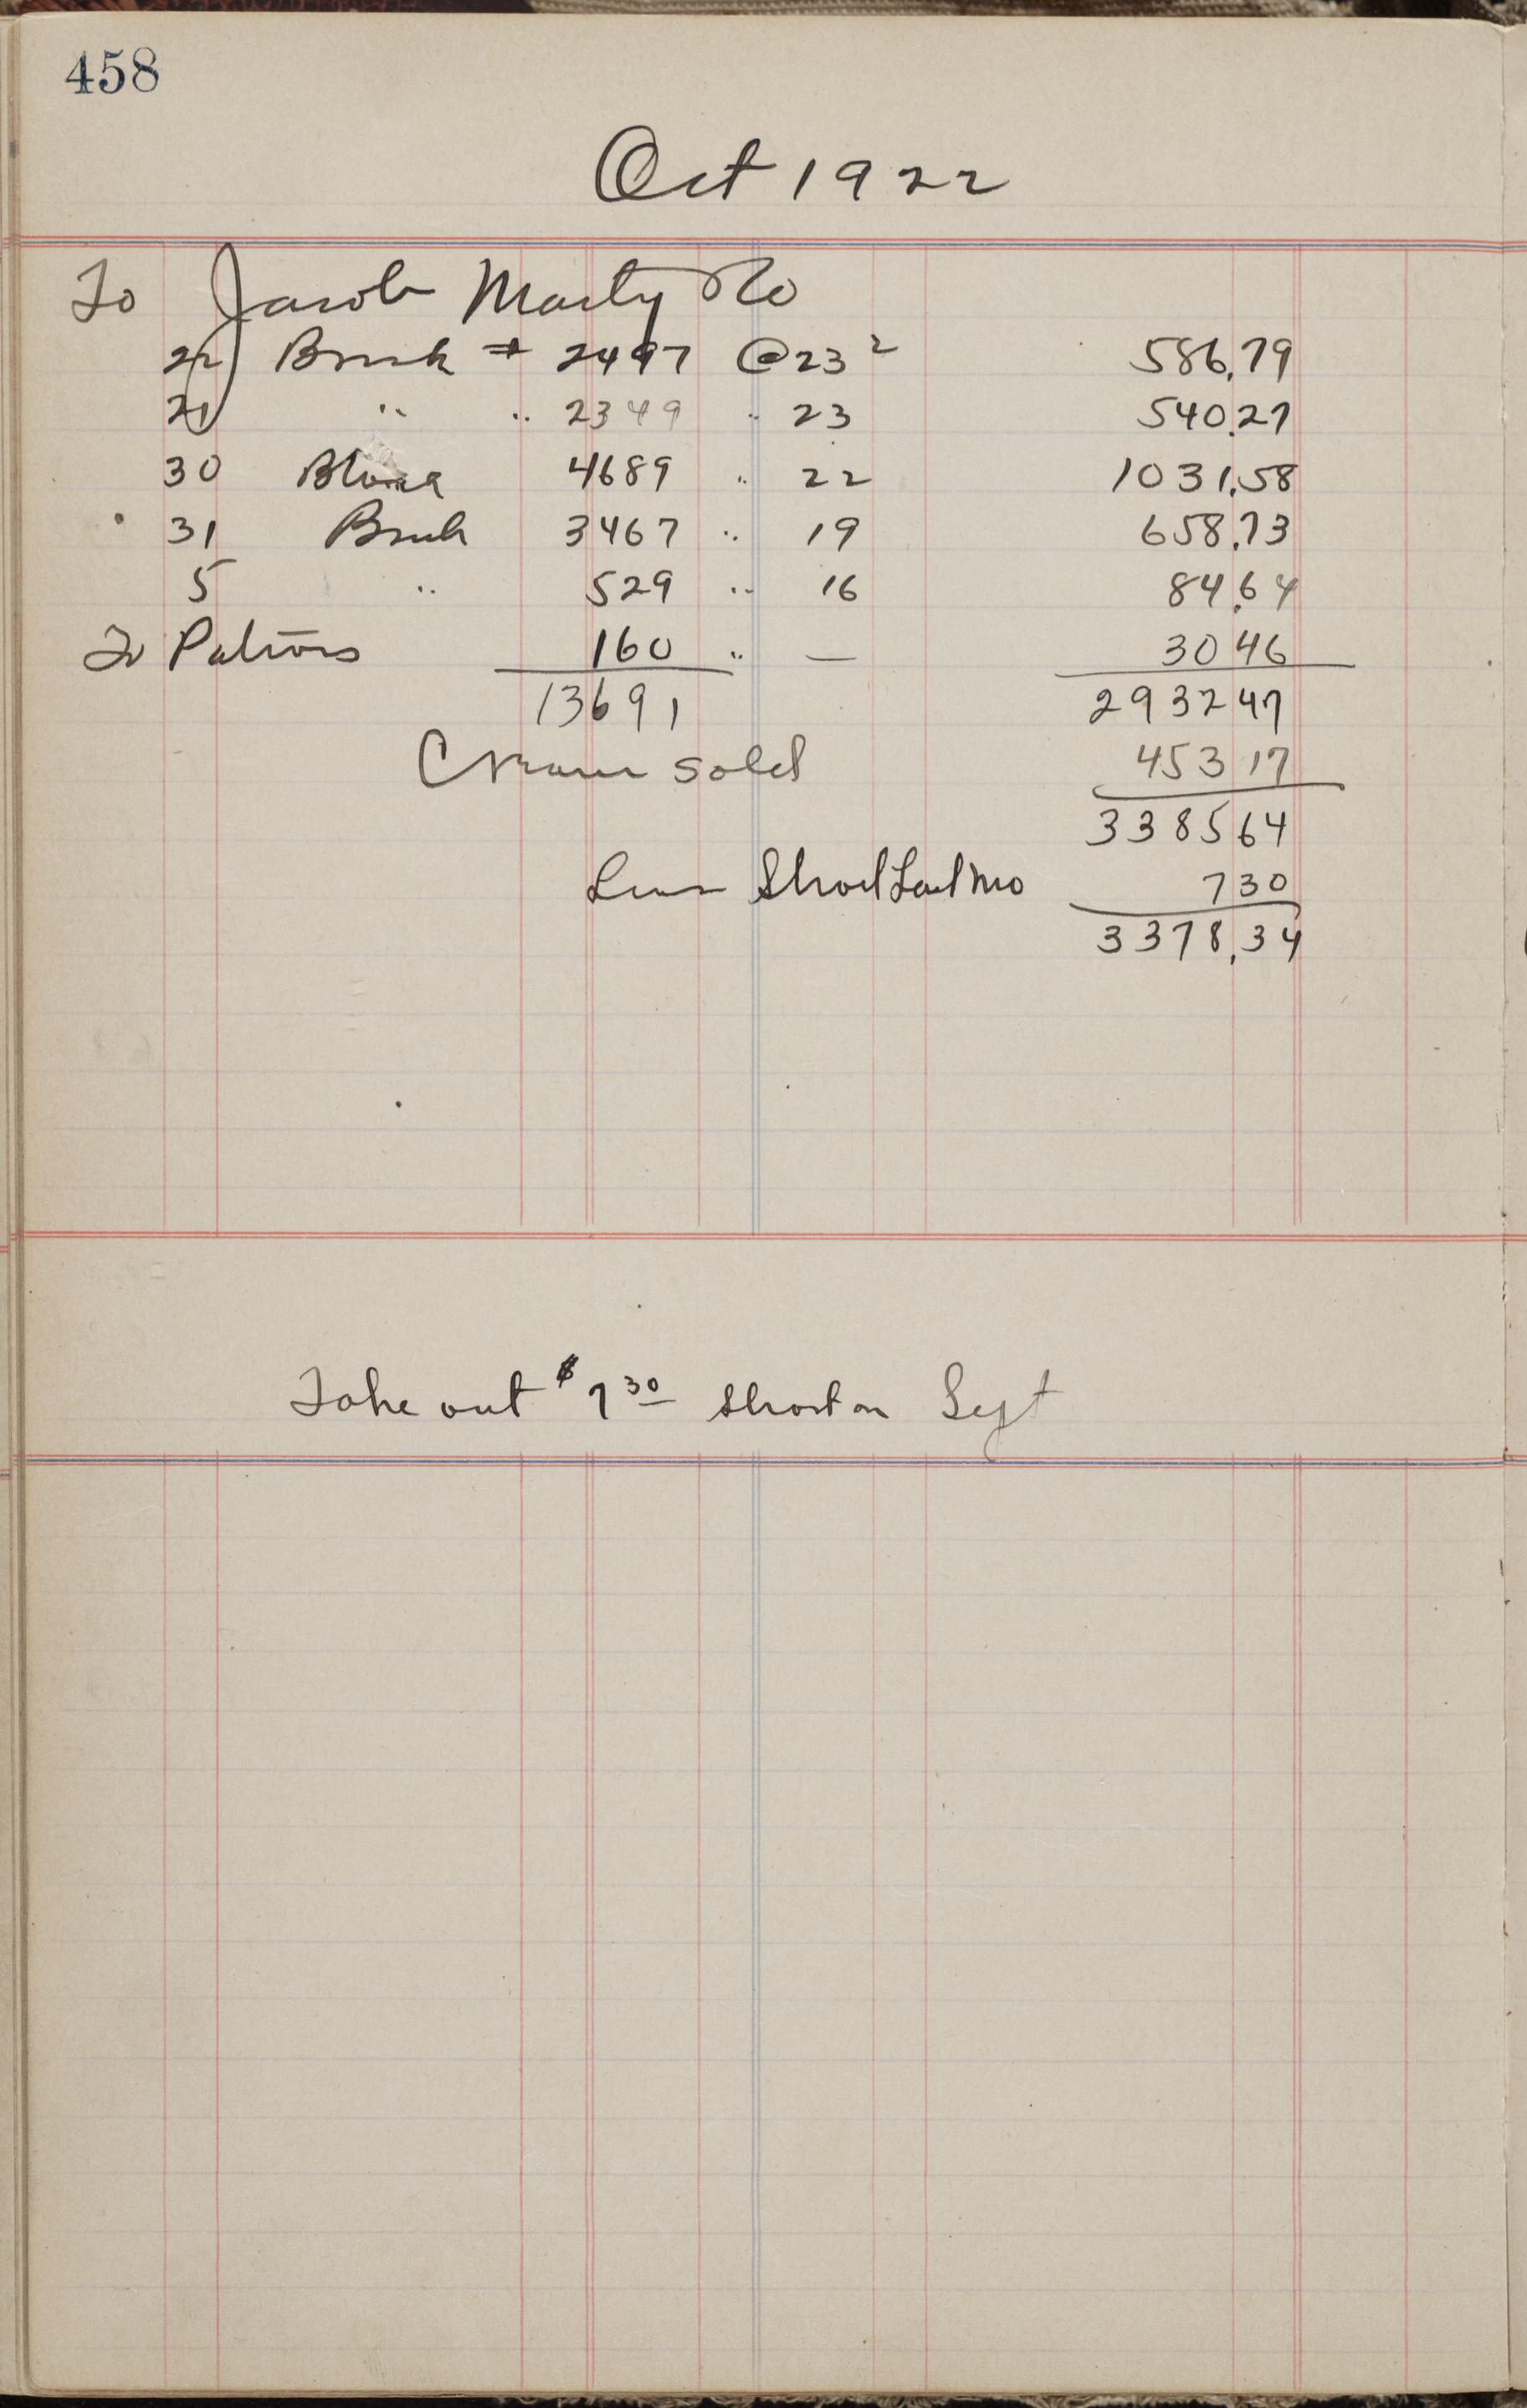 458
Oct 1922
To Jacob Marty Co
22 Brick # 2497 @ 23 ½ 586.79
21 " " 2349 " 23 540.27
30 Block 4689 " 22 1031.58
31 Brick 3467 " 19 658.73
5 " 529 " 16 84.64
To Patrons 160 " — 30 46
13691 2932 47
Cream sold 453 17
3385 64
Less Short Last Mo 7 30
3378.34
Take out $7 30 short on Sept